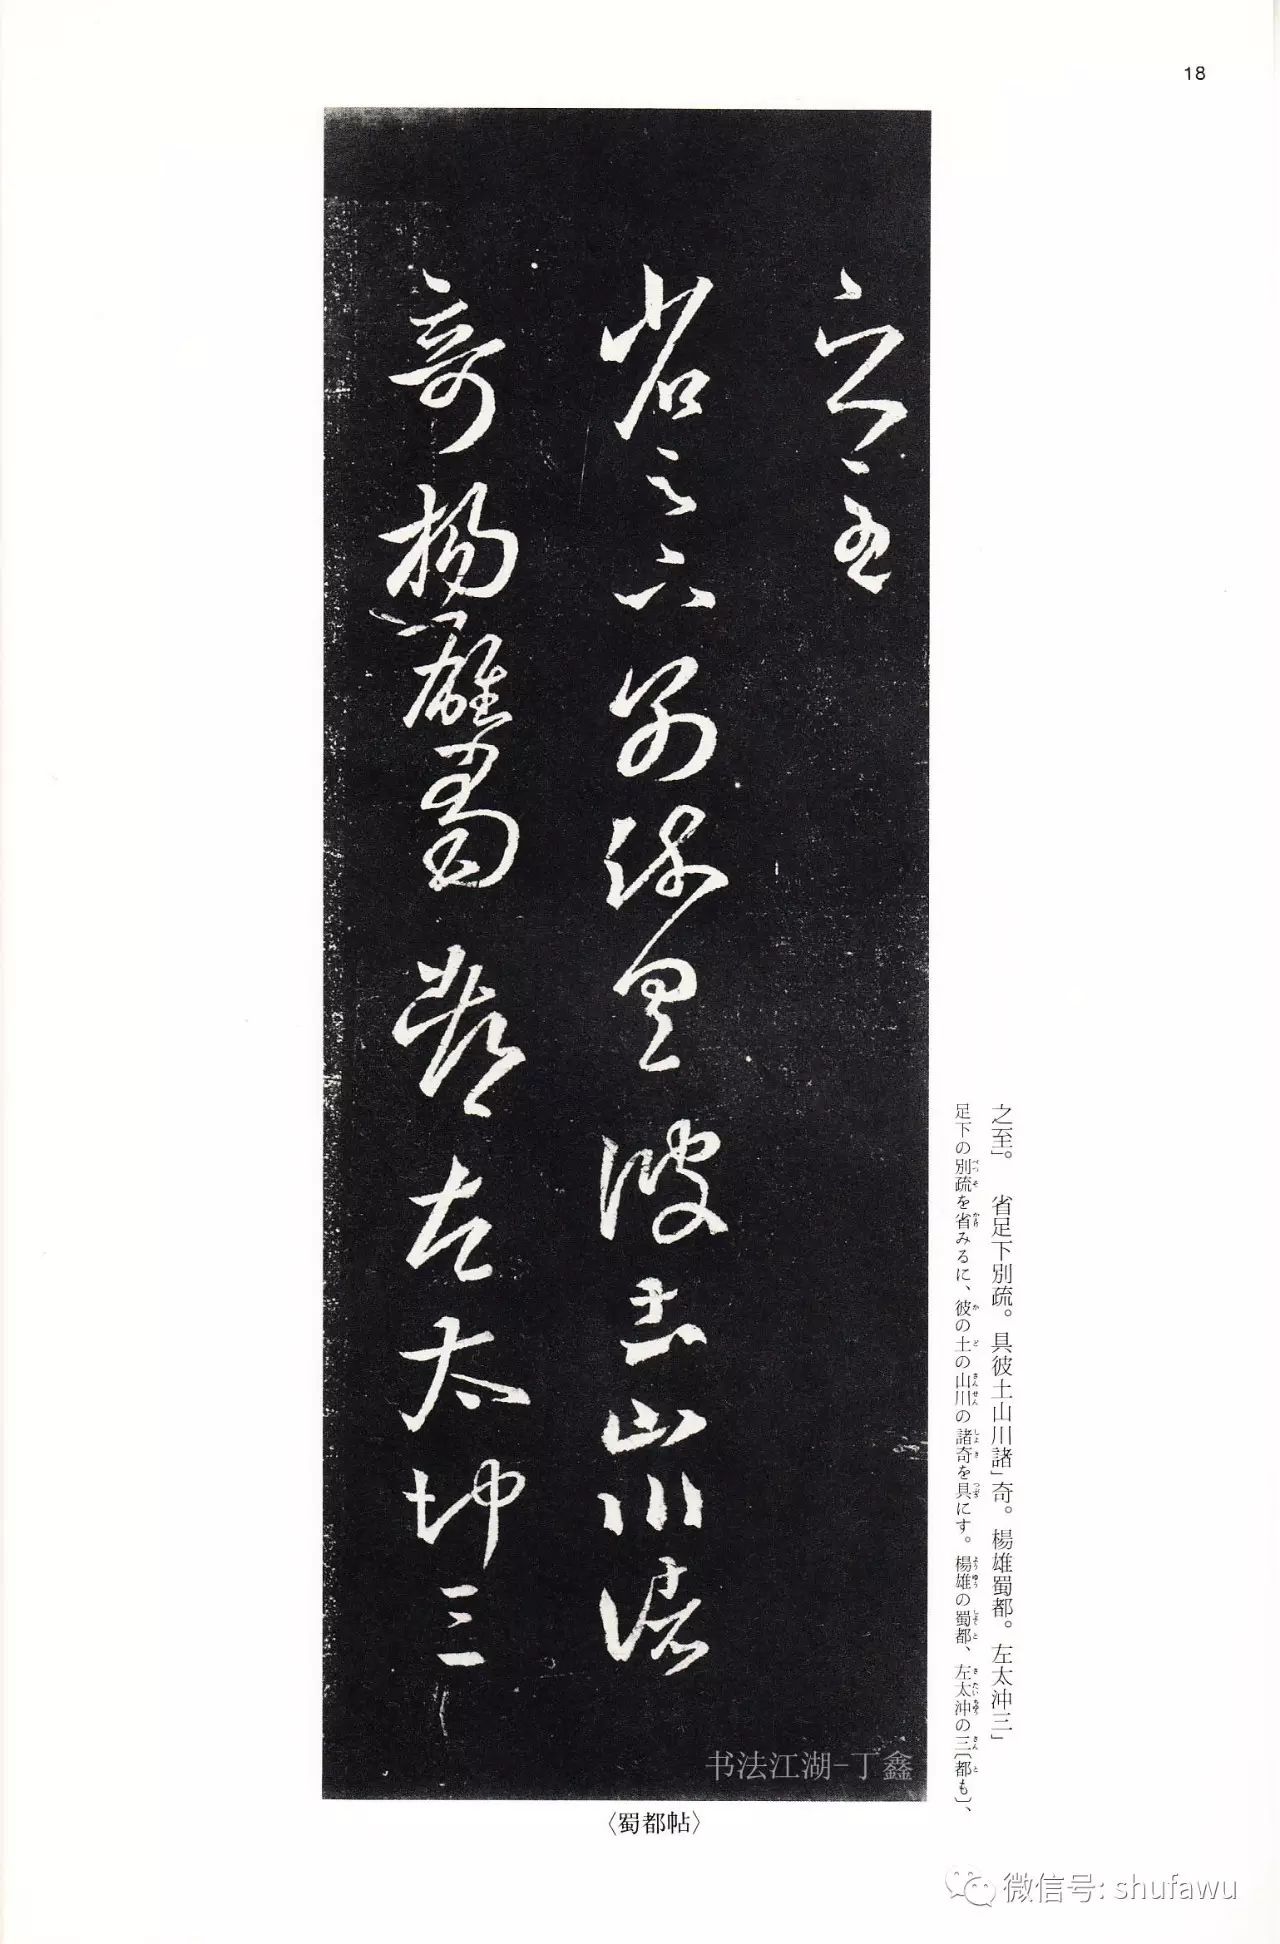 18
之至
省足下別疏具彼土山川諸
奇楊雄蜀都左太沖三
之至」。　省足下別疏。具彼土山川諸」奇。楊雄蜀都。左太沖三」
足下の別疏を省みるに、彼の土の山川の諸奇を具にす。楊雄の蜀都、左太沖の三〔都も〕、
书法江湖-丁鑫
〈蜀都帖〉
微信号: shufawu